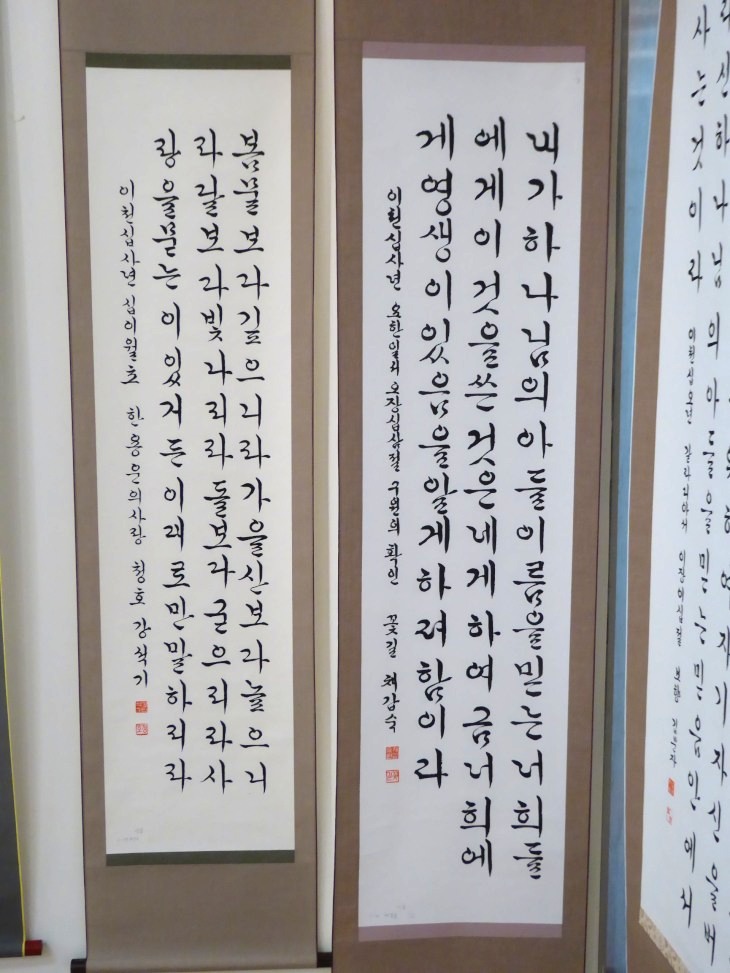 봄물보다깊으니라가을산보다높으니
라달보다빛나리라돌보다굳으리라사
랑을묻는이있거든이대로만말하리라
이천십사년 십이월초 한용운의사랑 청호 강석기
내가하나님의아들이름을믿는너희들
에게이것을쓴것은네게하여금너희에
게영생이있음을알게하려함이라
이천십사년 요한일서 오장십삼절 구원의 확인 꽃길 채갑숙
위하여자기자신을버
리신하나님의아들을믿는믿음안에서
사는것이라
이천십오년 갈라디아서 이장이십절